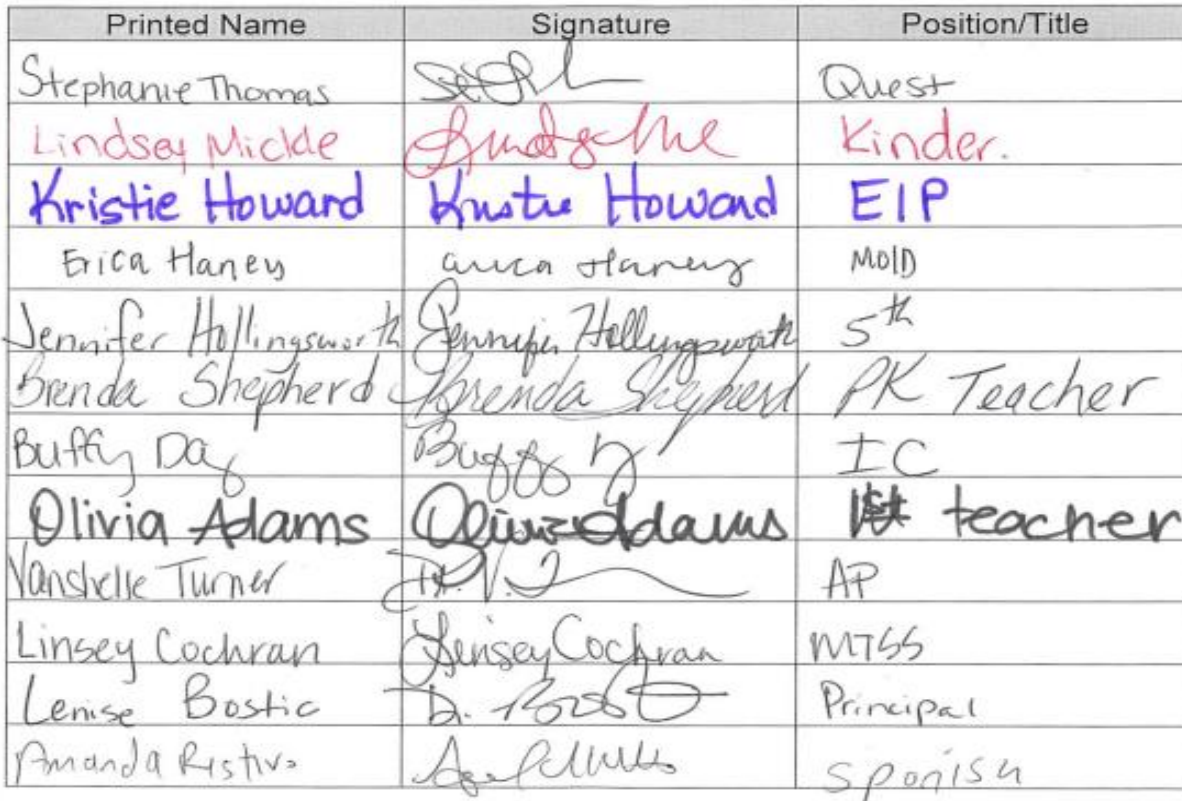 Printed Name Signature Position/Title
Stephanie Thomas Quest
Lindsey Mickle Kinder.
Kristie Howard Kristie Howard EIP
Erica Haney Erica Haney MOID
Jennifer Hollingsworth Jennifer Hollingsworth 5th
Brenda Shepherd Brenda Shepherd PK Teacher
Buffy Day Buffy D IC
Olivia Adams Olivia Adams 1st teacher
Vanshelle Turner Dr. V. AP
Linsey Cochran Linsey Cochran MTSS
Lenise Bostic D. Principal
Amanda Restivo Spanish